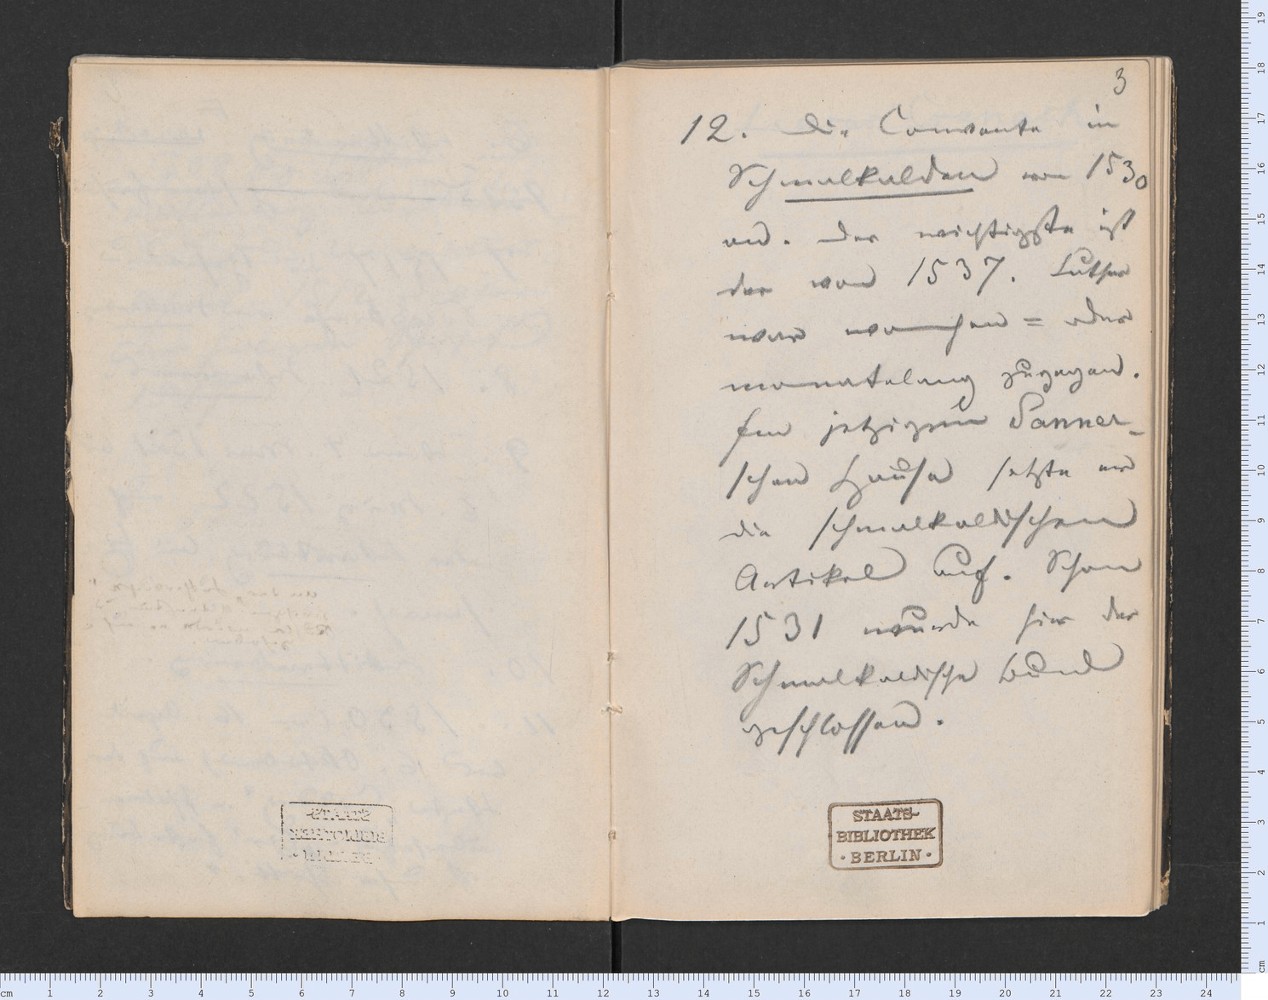 3
12. Die Convente in
Schmalkalden von 1530
an. Der wichtigste ist
der von 1537. Luther
war wochen = oder
monatelang zugegen.
Im jetzigen Sanner-
schen Hause setzte er
die schmalkaldischen
Artikel auf. Schon
1531 wurde hier der
Schmalkaldische Bund
geschlossen.
STAATS-
BIBLIOTHEK
· BERLIN ·